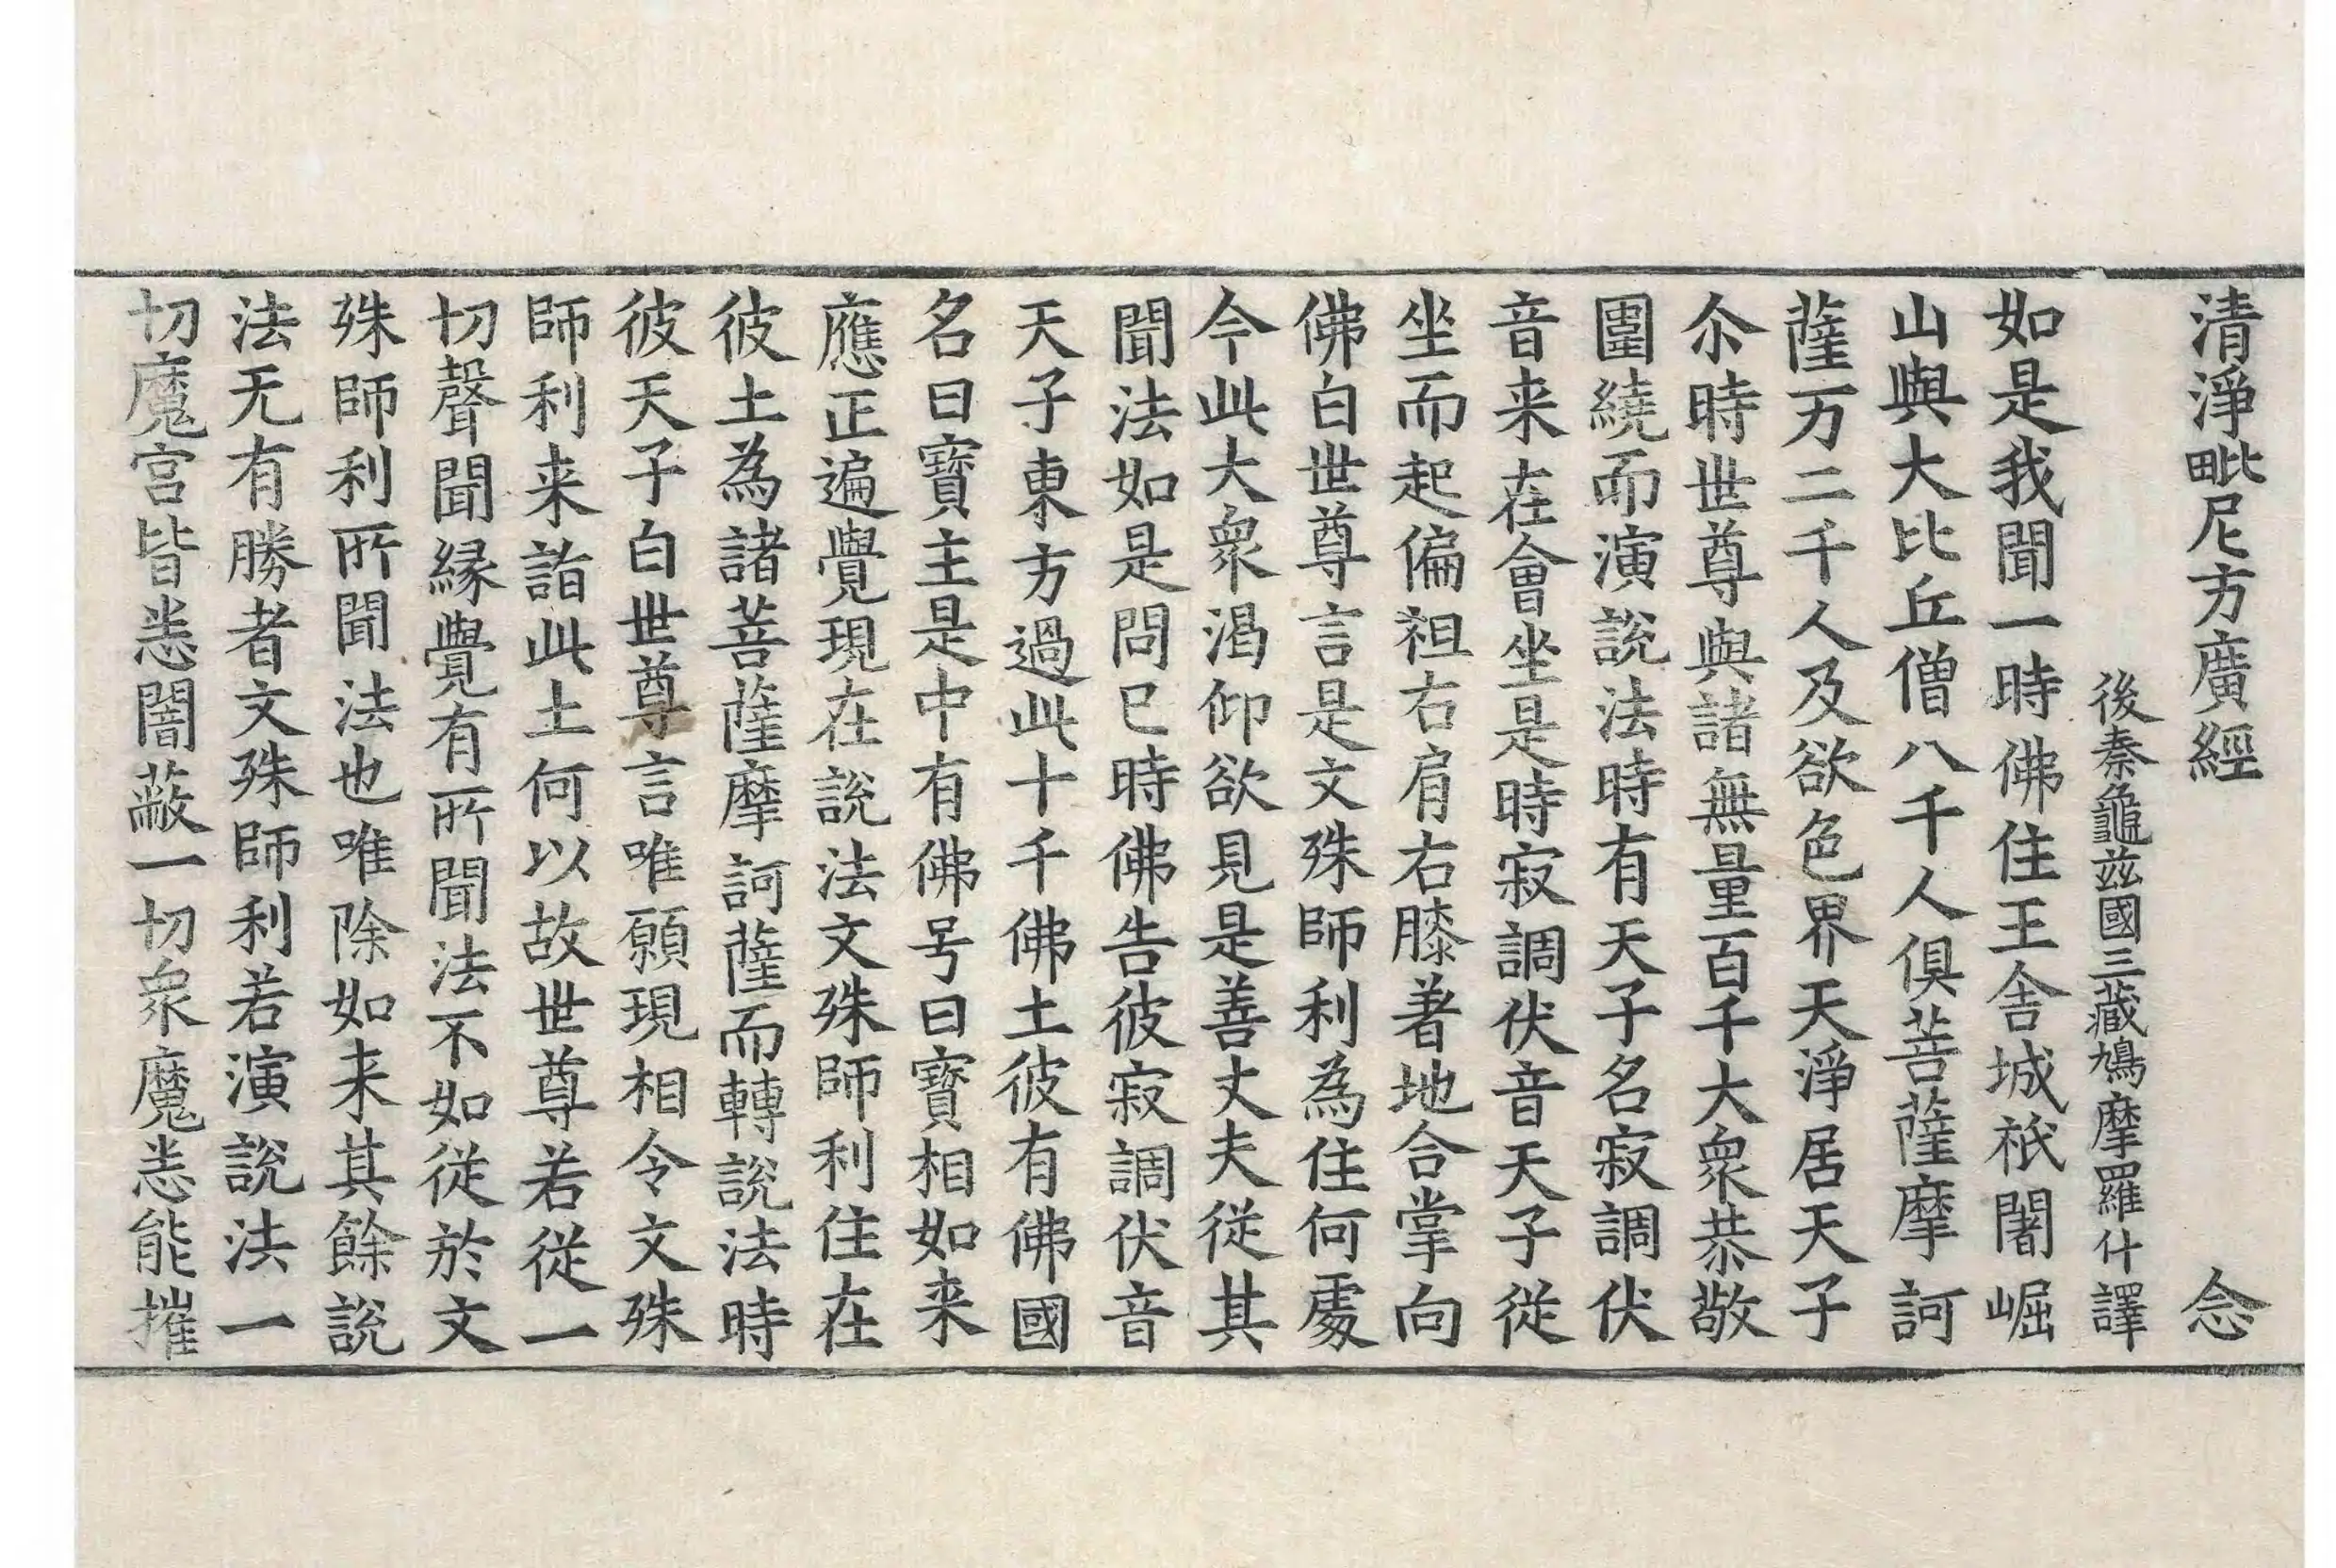 清淨毗尼方廣經 念
後秦龜茲國三藏鳩摩羅什譯
如是我聞一時佛住王舍城祇闍崛
山與大比丘僧八千人俱菩薩摩訶
薩万二千人及欲色界天淨居天子
尒時世尊與諸無量百千大衆恭敬
圍繞而演說法時有天子名寂調伏
音来在會坐是時寂調伏音天子從
坐而起偏袒右肩右膝著地合掌向
佛白世尊言是文殊師利為住何處
今此大衆渴仰欲見是善丈夫從其
聞法如是問已時佛告彼寂調伏音
天子東方過此十千佛土彼有佛國
名曰寶主是中有佛号曰寶相如来
應正遍覺現在說法文殊師利住在
彼土為諸菩薩摩訶薩而轉說法時
彼天子白世尊言唯願現相令文殊
師利来詣此土何以故世尊若從一
切聲聞縁覺有所聞法不如從於文
殊師利所聞法也唯除如来其餘說
法无有勝者文殊師利若演說法一
切魔宫皆恙闇蔽一切衆魔恙能摧